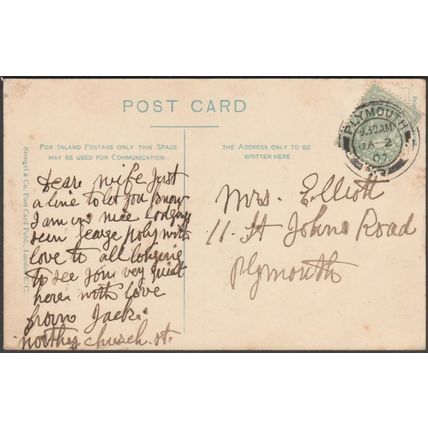 POST CARD
FOR INLAND POSTAGE ONLY THIS SPACE
MAY BE USED FOR COMMUNICATION.
THE ADDRESS ONLY TO BE
WRITTEN HERE
Stengel & Co. Post Card Publ., London E. C.
PLYMOUTH
9.30AM
JA 2
07
Dear Wife Just
a line to let you know
I am in nice lodging
seen George
love to all longing
to see you very quiet
here with love
from Jack
church st.
Mrs. Elliott
11. St Johns Road
Plymouth